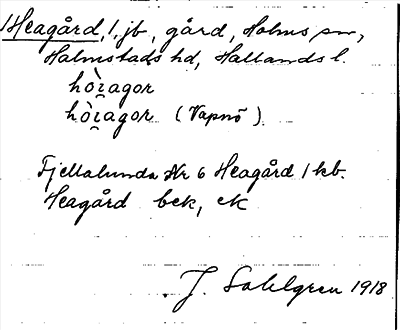 1 Heagård, 1, jb, gård, Holms sn,
Halmstads hd, Hallands l.
hòi̯agor
hòi̯agor (Vapnö)
Fjellalunda Nr 6 Heagård 1 kb.
Heagård bek, ek
J. Sahlgren 1918